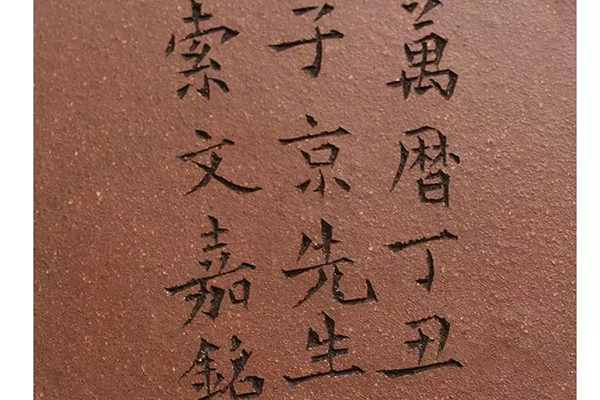 萬曆丁丑
子京先生
索文嘉銘